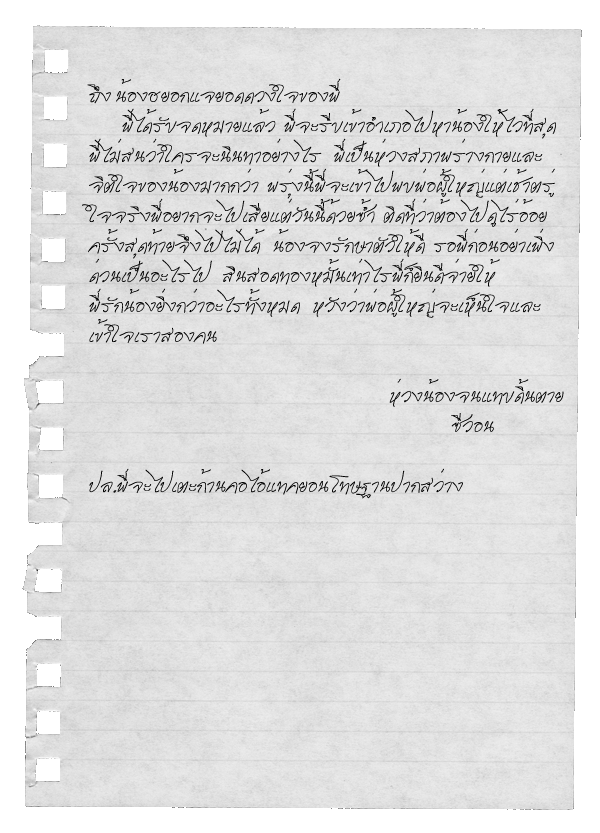 ถึง น้องฮยอกแจยอดดวงใจของพี่
พี่ได้รับจดหมายแล้ว พี่จะรีบเข้าอำเภอไปหาน้องให้ไวที่สุด
พี่ไม่สนว่าใครจะนินทาอย่างไร พี่เป็นห่วงสภาพร่างกายและ
จิตใจของน้องมากกว่า พรุ่งนี้พี่จะเข้าไปพบพ่อผู้ใหญ่แต่เช้าตรู่
ใจจริงพี่อยากจะไปเสียแต่วันนี้ด้วยซ้ำ ติดที่ว่าต้องไปดูไร่อ้อย
ครั้งสุดท้ายจึงไปไม่ได้ น้องจงรักษาตัวให้ดี รอพี่ก่อนอย่าเพิ่ง
ด่วนเป็นอะไรไป สินสอดทองหมั้นเท่าไรพี่ก็ยินดีจ่ายให้
พี่รักน้องยิ่งกว่าอะไรทั้งหมด หวังว่าพ่อผู้ใหญ่จะเห็นใจและ
เข้าใจเราสองคน
ห่วงน้องจนแทบดิ้นตาย
ชีวอน
ปล.พี่จะไปเตะก้านคอไอ้แทคยอนโทษฐานปากสว่าง